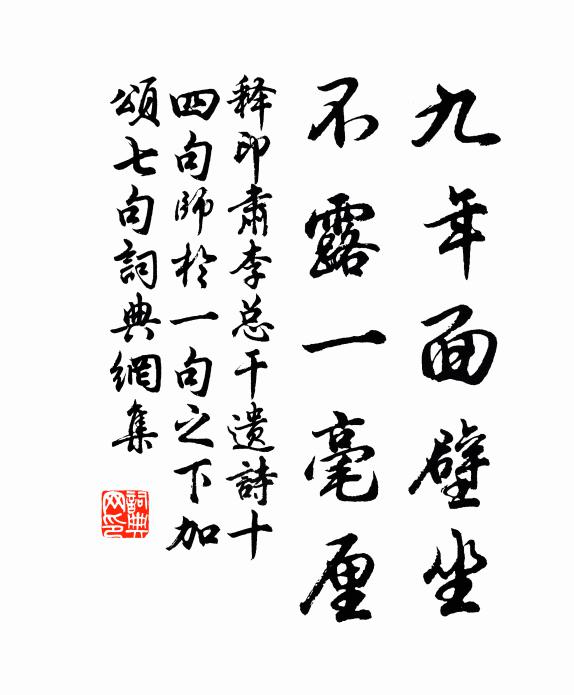 九年面壁坐
不露一毫厘
释印肃李总干遗詩十
四句師於一句之下加
頌七句詞典網集
詞典
网印